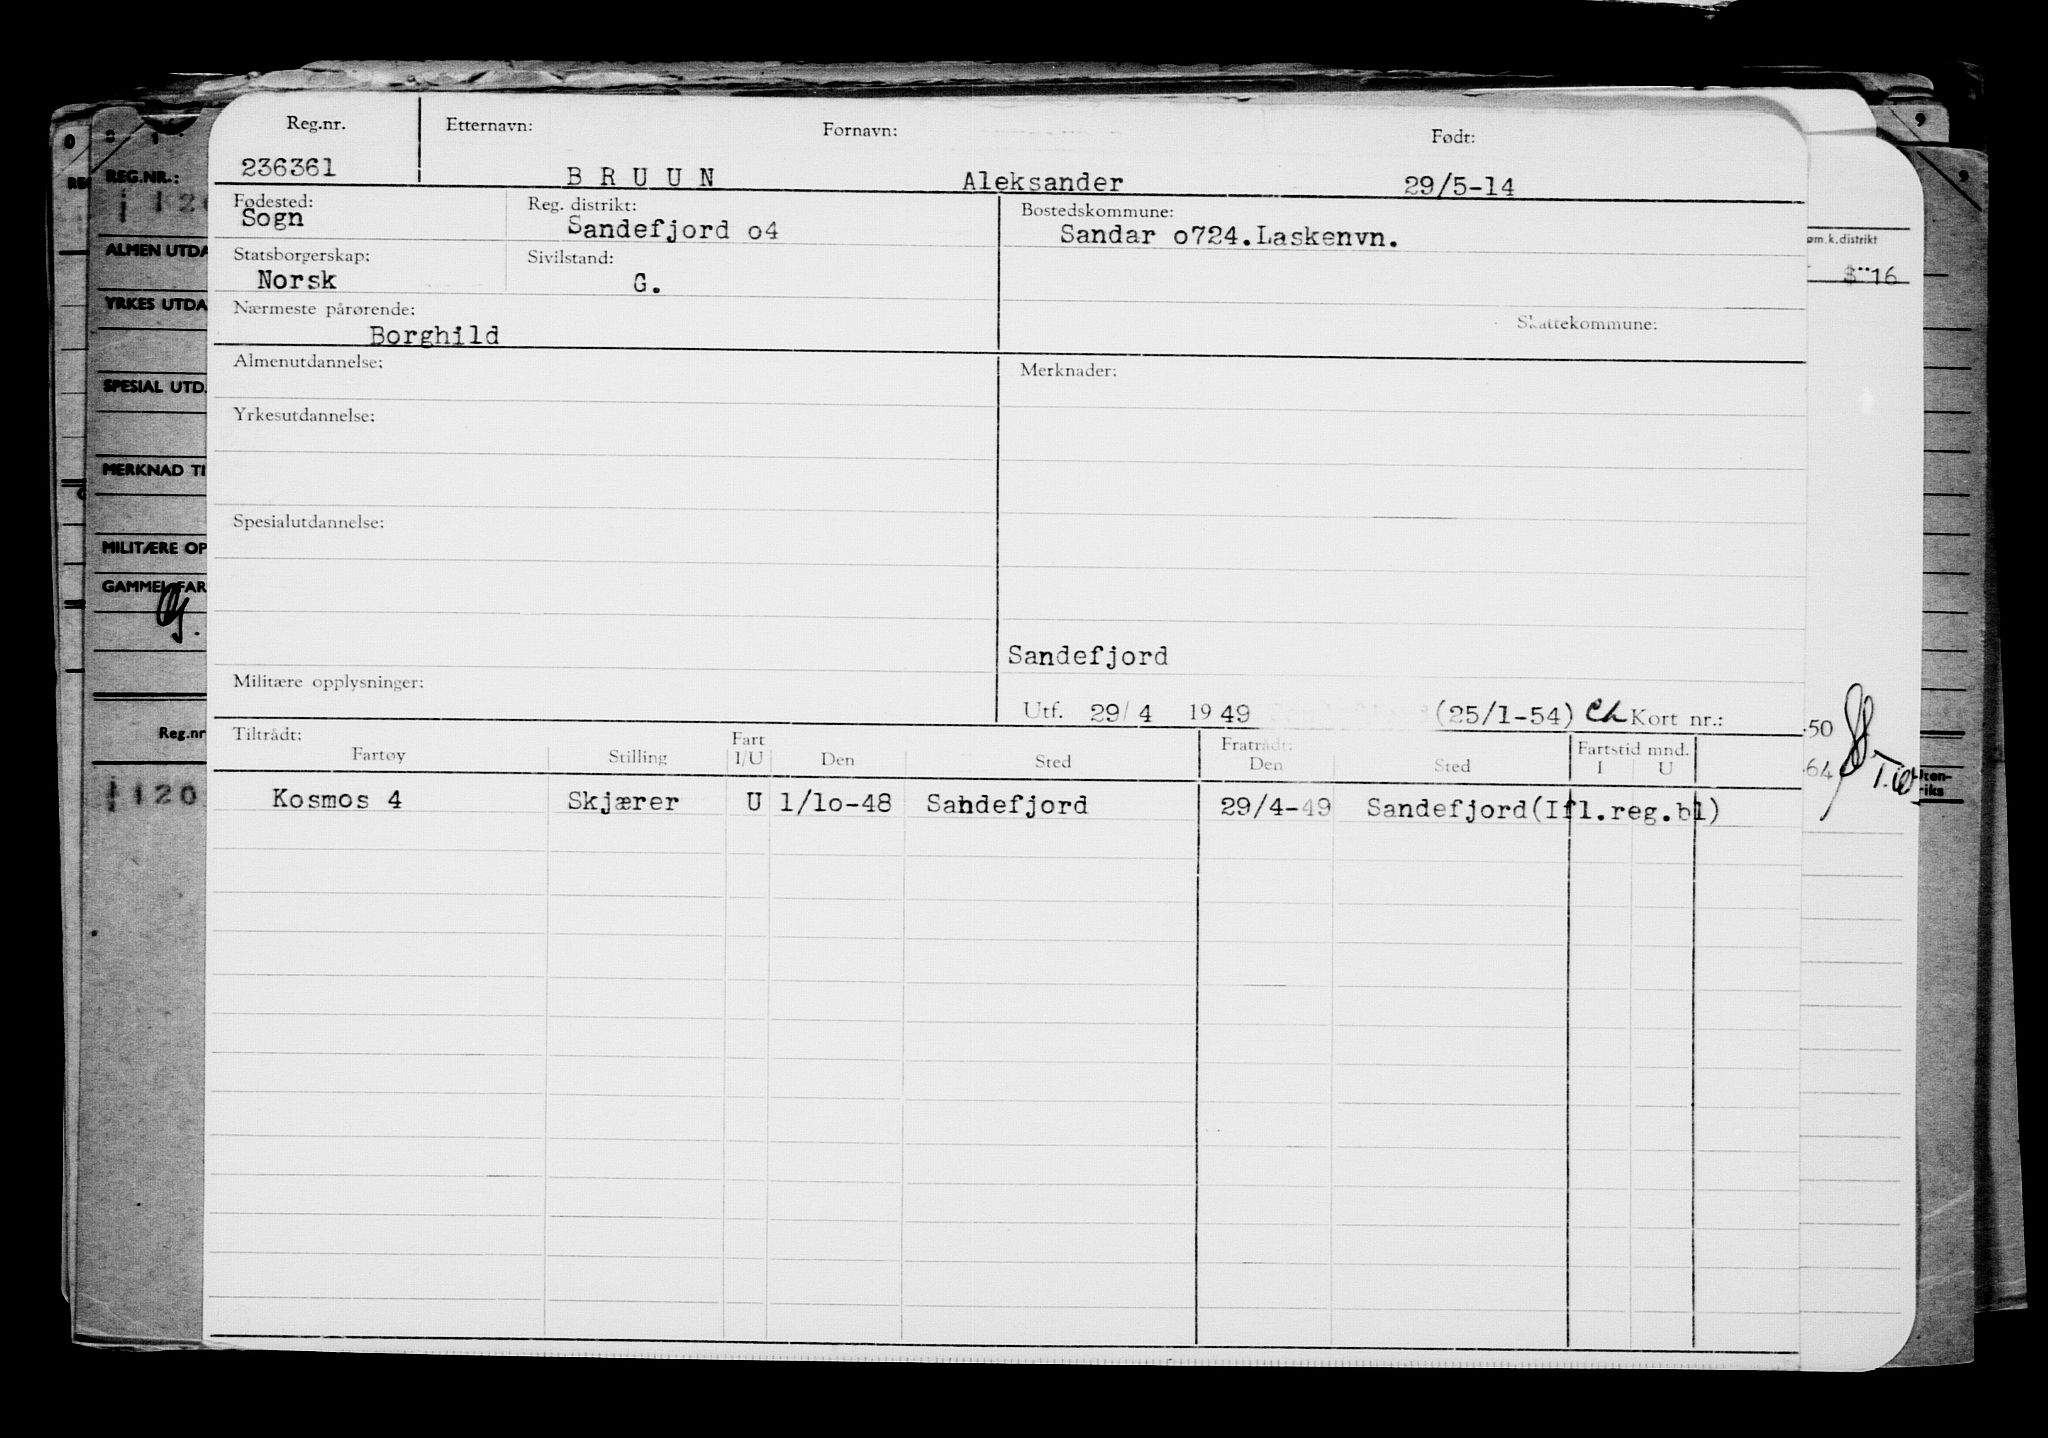 Reg.nr. Etternavn: Fornavn: Født:
236361 B R U U N Aleksander 29/5-14
Fødested: Reg. distrikt: Bostedskommune:
Sogn Sandefjord o4 Sandar o724.Laskenvn.
Statsborgerskap: Sivilstand:
Norsk G.
Nærmeste pårørende: Skattekommune:
Borghild
Almenutdannelse: Merknader:
Yrkesutdannelse:
Spesialutdannelse:
Sandefjord
Militære opplysninger:
Utf. 29/ 4 19 49 (25/1-54) Ch Kort nr.:
Tiltrådt: Fart Fratrådt: Fartstid mnd.
Fartøy Stilling I/U Den Sted Den Sted I U
Kosmos 4 Skjærer U 1/1o-48 Sandefjord 29/4-49 Sandefjord(Ifl.reg.bl)
REG.NR.:
ALMEN UTDA
YRKES UTDA
SPESIAL UTD.
MERKNAD TI
MILITÆRE OP
GAMMEL FAR
Reg.nr
120
om.k.distrikt
16
.50
64
Uten-
riks